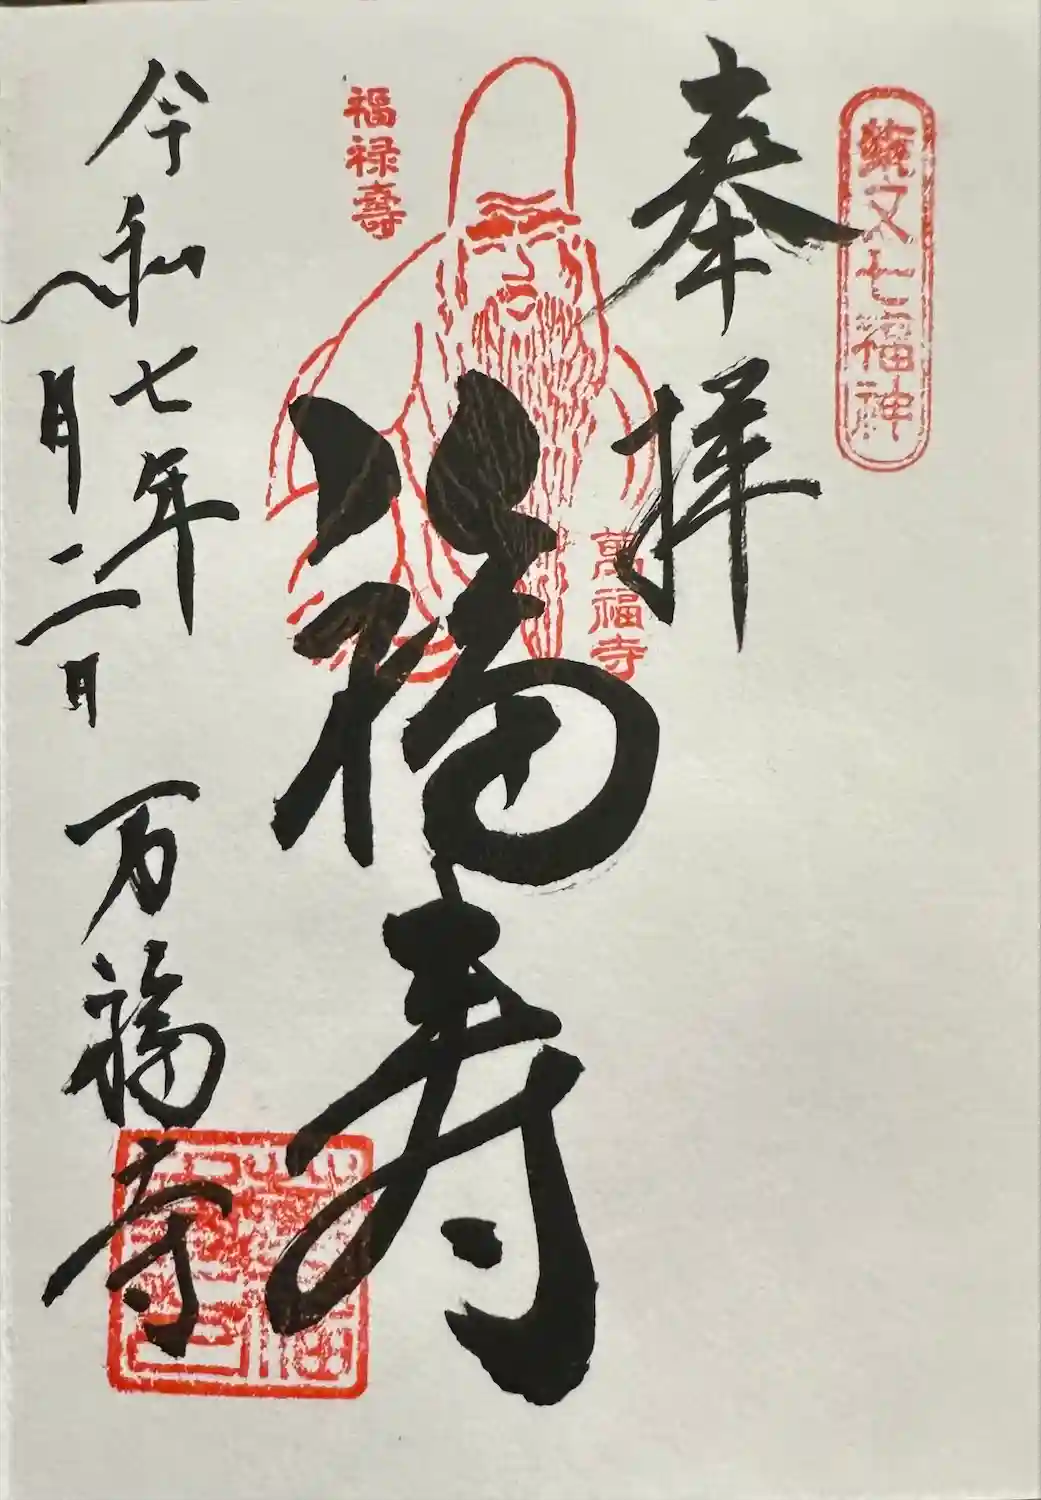 七福神
奉拝
萬福寺
福寿
福禄壽
令和七年
一月二日
万福寺